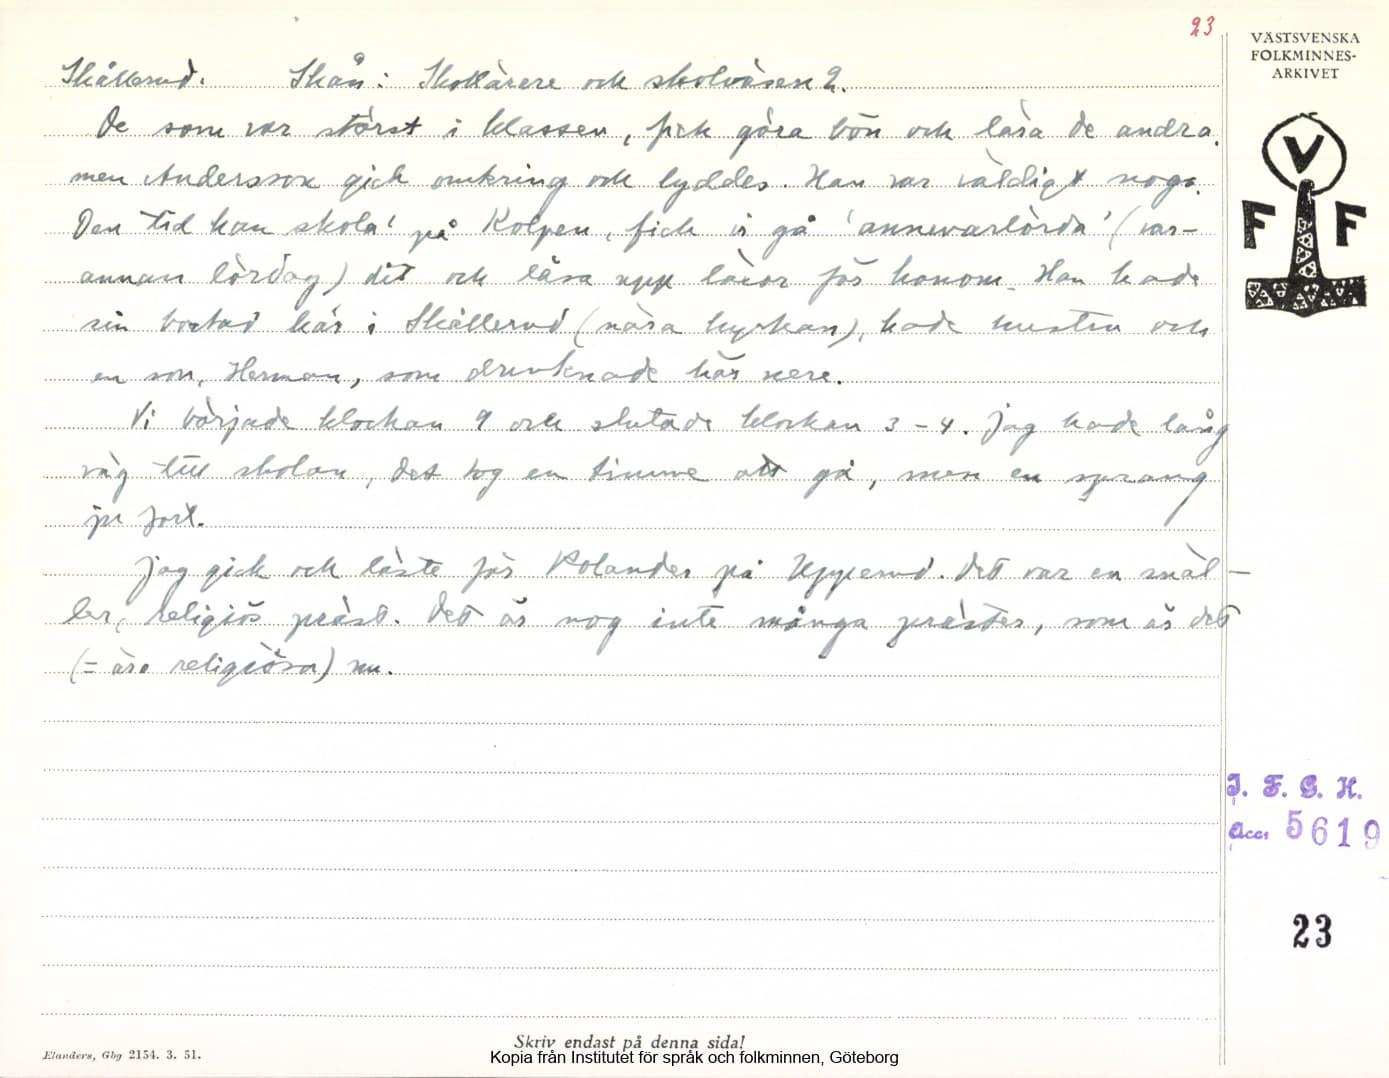 23
VÄSTSVENSKA
FOLKMINNES-
ARKIVET
V
F F
Skållerud. Skån: Skollärere och skolväsen 2.
De som var störst i klassen, fick göra bön och läsa de andra,
men Andersson gick omkring och lyddes. Han var väldigt noga.
Den tid han skola' på Kolpen, fick vi gå 'annevarlörda' (var-
annan lördag) dit och läsa upp läxor för honom. Han hade
sin bostad här i Skållerud (nära kyrkan), hade hustru och
en son, Herman, som drunknade här nere.
Vi började klockan 9 och slutade klockan 3-4. Jag hade lång
väg till skolan, det tog en timme att gå, men en sprang
ju fort.
Jag gick och läste för Rolander på Upperud. Det var en snäl-
ler, religiös präst. Det är nog inte många präster, som är det
(= äro religiösa) nu.
I. F. G. H.
Acc. 5619
23
Skriv endast på denna sida!
Elanders, Gbg 2154. 3. 51.
Kopia från Institutet för språk och folkminnen, Göteborg